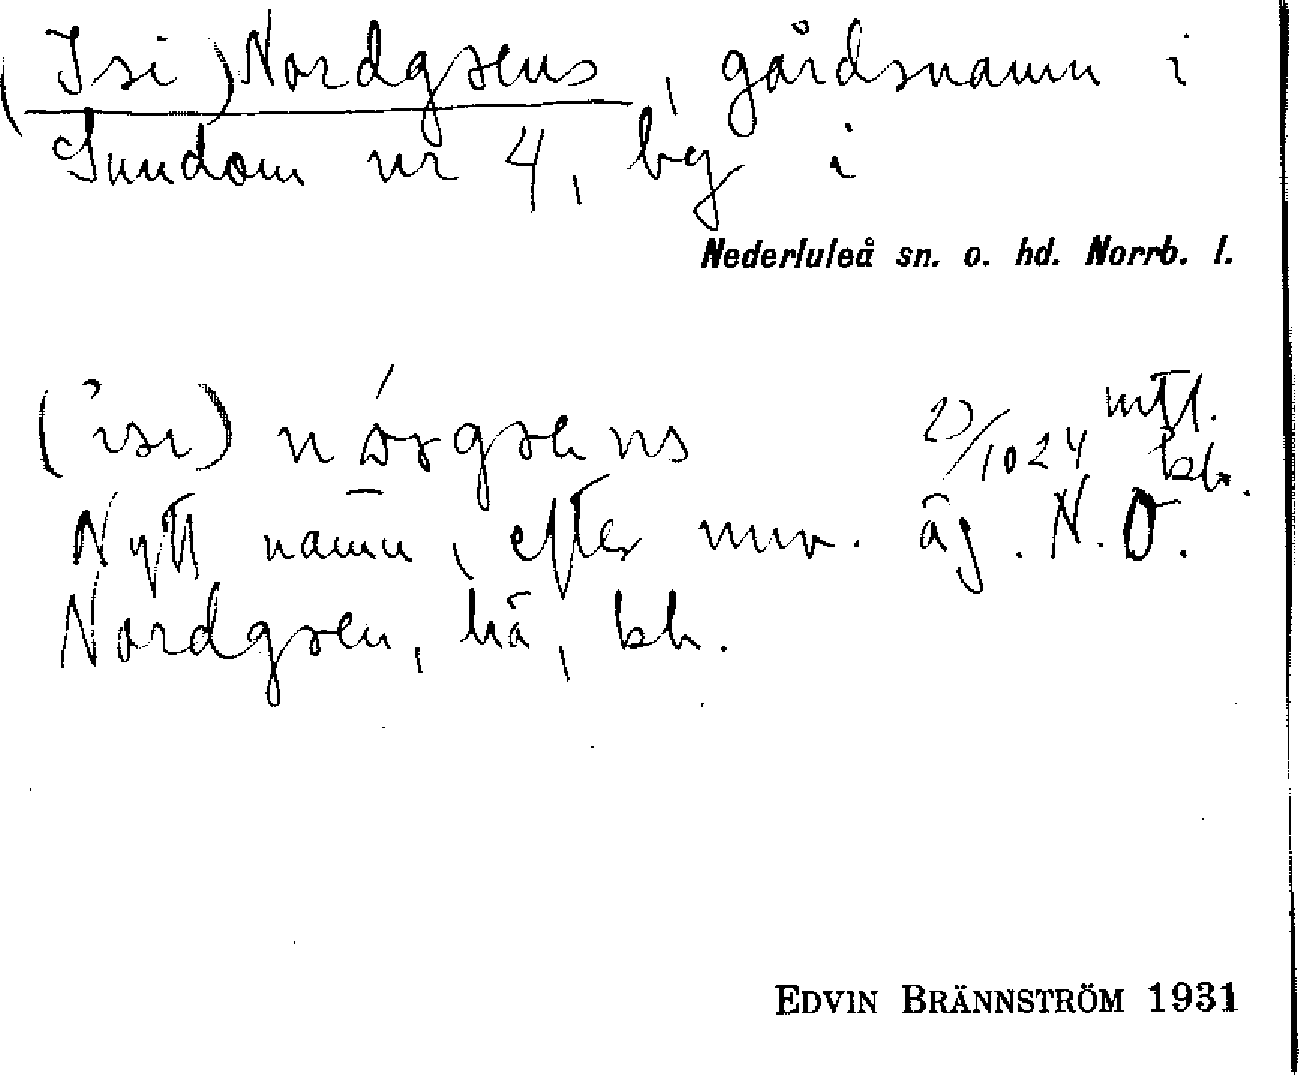 (Isi) Nordgrens, gårdsnamn i
Sundom nr 4, by i
Nederluleå sn. o. hd. Norrb. l.
(isi) nórgrens 23/1024 mtl.
kb.
Nytt namn, efter nuv. äg. N. O.
Nordgren, hä, kb.
EDVIN BRÄNNSTRÖM 1931